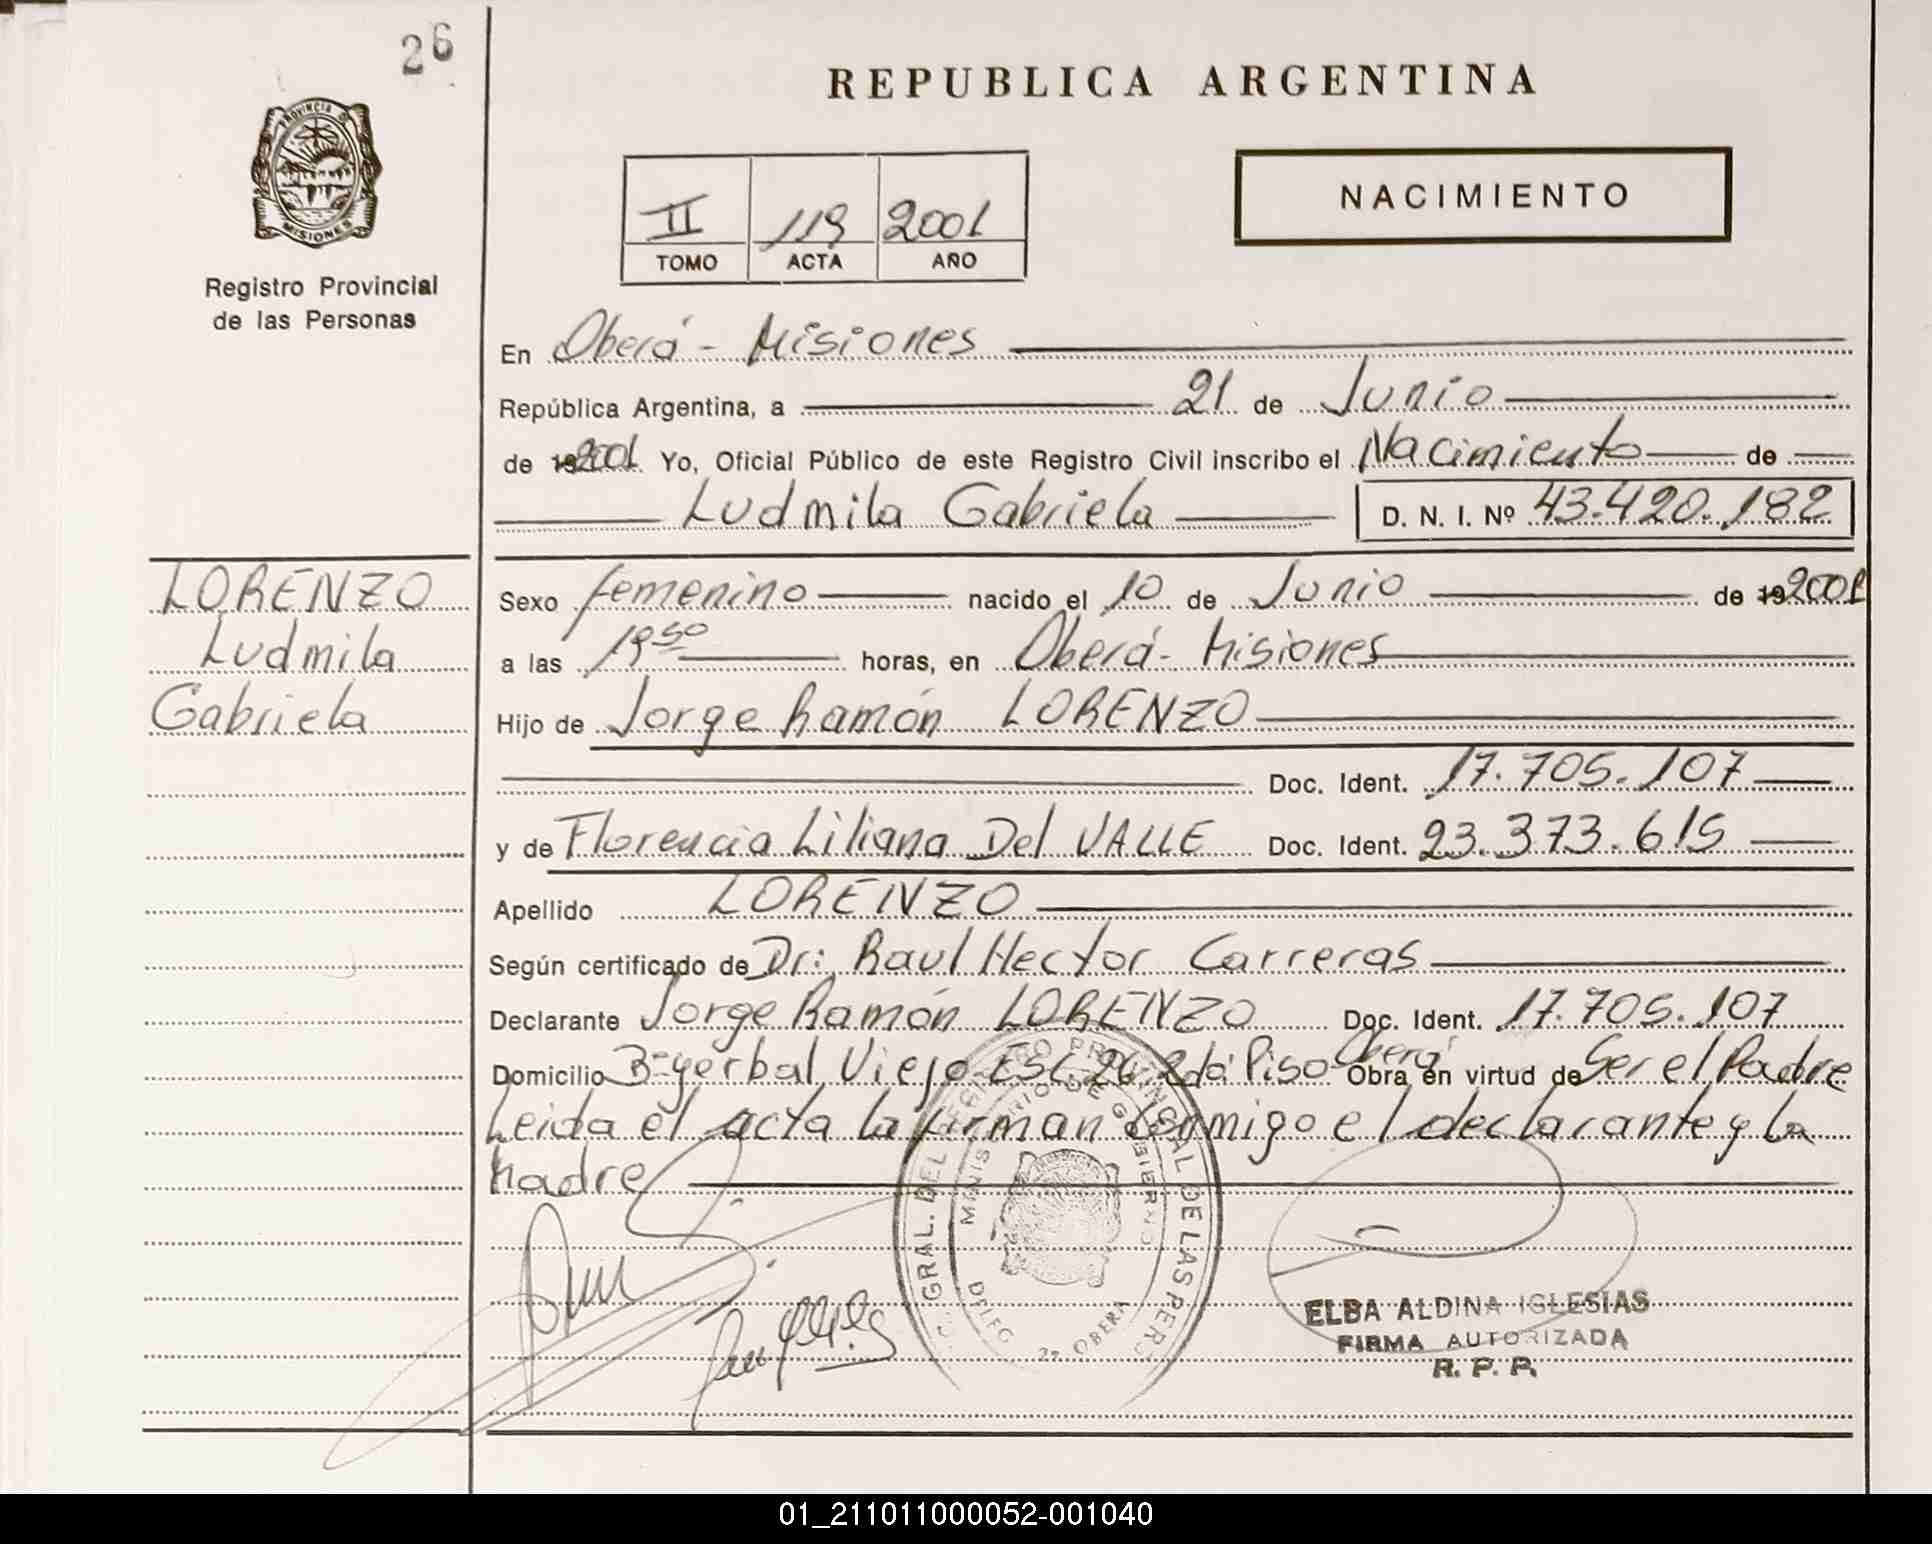 26
REPUBLICA ARGENTINA
PROVINCIA D
MISIONES
Registro Provincial
de las Personas
II 119 2001
TOMO ACTA AÑO
NACIMIENTO
En Oberá - Misiones
República Argentina, a 21 de Junio
de 19 2001 Yo, Oficial Público de este Registro Civil inscribo el Nacimiento de
Ludmila Gabriela D. N. I. Nº 43.420.182
LORENZO
Ludmila
Gabriela
Sexo femenino nacido el 10 de Junio de 19 2001
a las 19 50 horas, en Oberá - Misiones
Hijo de Jorge Ramón LORENZO
Doc. Ident. 17.705.107
y de Florencia Liliana Del VALLE Doc. Ident. 23.373.615
Apellido LORENZO
Según certificado de Dr: Raul Hector Carreras
Declarante Jorge Ramón LORENZO Doc. Ident. 17.705.107
Domicilio Bº yerbal Viejo Esc 26 2do Piso Oberá Obra en virtud de Ser el Padre
Leida el acta la firman conmigo el declarante y la
Madre
GRAL. DEL REGISTRO PROVINCIAL DE LAS PERS
MINISTERIO DE GOBIERNO
DELEG OBERA
ELBA ALDINA IGLESIAS
FIRMA AUTORIZADA
R. P. P.
01_211011000052-001040